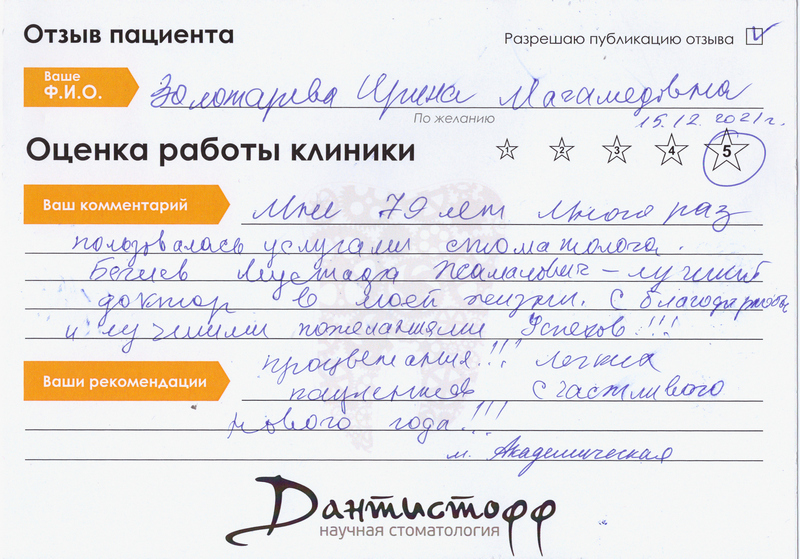 Отзыв пациента
Разрешаю публикацию отзыва
Ваше
Ф.И.О.
Золотарева Ирина Магамедовна
По желанию
15.12.2021г.
Оценка работы клиники
1 2 3 4 5
Ваш комментарий
Мне 79 лет много раз
пользовалась услугами стоматолога.
Бегиев Мустафа Жамалович – лучший
доктор в моей жизни. С благодарностью
и лучшими пожеланиями Успехов!!!
процветания!!! легких
Ваши рекомендации
пациентов Счастливого
Нового года!!!
м. Академическая
Дантистофф
научная стоматология